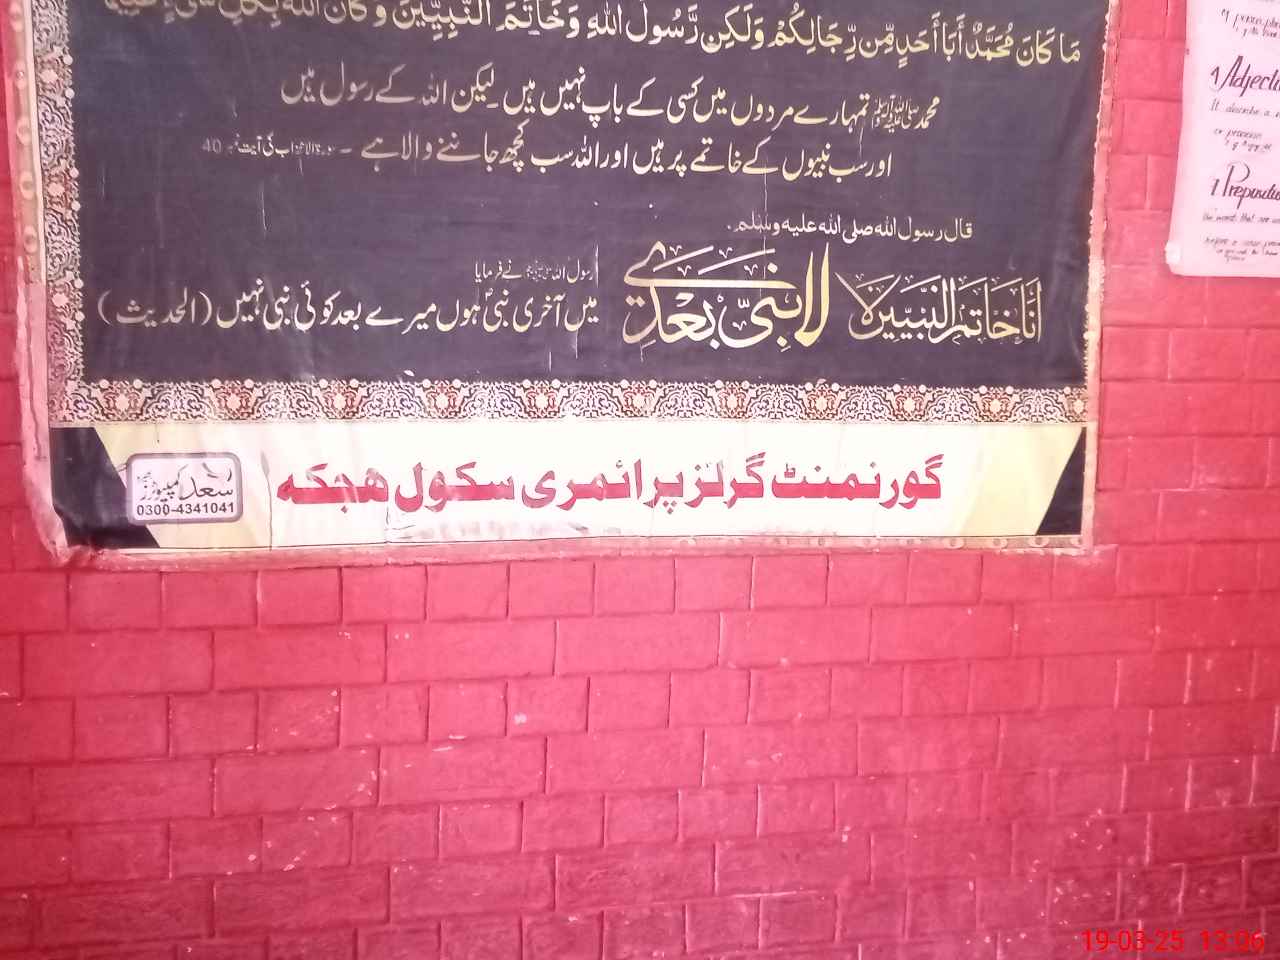 مَا كَانَ مُحَمَّدٌ أَبَا أَحَدٍ مِّن رِّجَالِكُمْ وَلَكِن رَّسُولَ اللهِ وَخَاتَمَ النَّبِيِّينَ وَكَانَ اللهُ بِكُلِّ
محمد ﷺ تمہارے مردوں میں کسی کے باپ نہیں ہیں لیکن اللہ کے رسول ہیں
اور سب نبیوں کے خاتمے پر ہیں اور اللہ سب کچھ جاننے والا ہے ۔ سورۃ الاحزاب کی آیت نمبر 40
قال رسول الله صلى الله عليه وسلم.
أَنَا خَاتَمُ النَّبِيِّينَ لَا نَبِيَّ بَعْدِي
رسول اللہ ﷺ نے فرمایا
میں آخری نبی ہوں میرے بعد کوئی نبی نہیں (الحدیث)
گورنمنٹ گرلز پرائمری سکول ھجکہ
سعد کمپیوٹرز
0300-4341041
Adjecti
It describe a
or pronoun
Prepositio
19-03-25 13:06